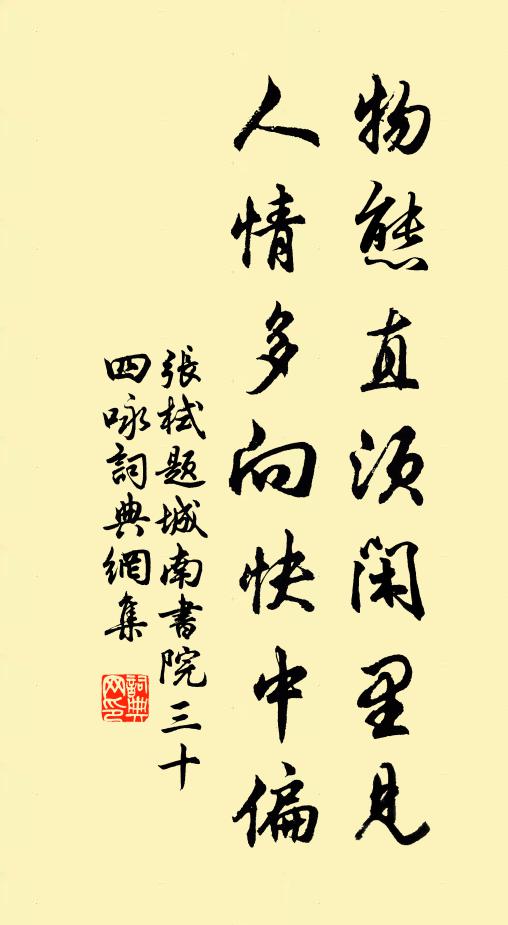 物態直須閑里見
人情多向快中偏
張栻題城南書院三十
四咏詞典網集
詞典
网印